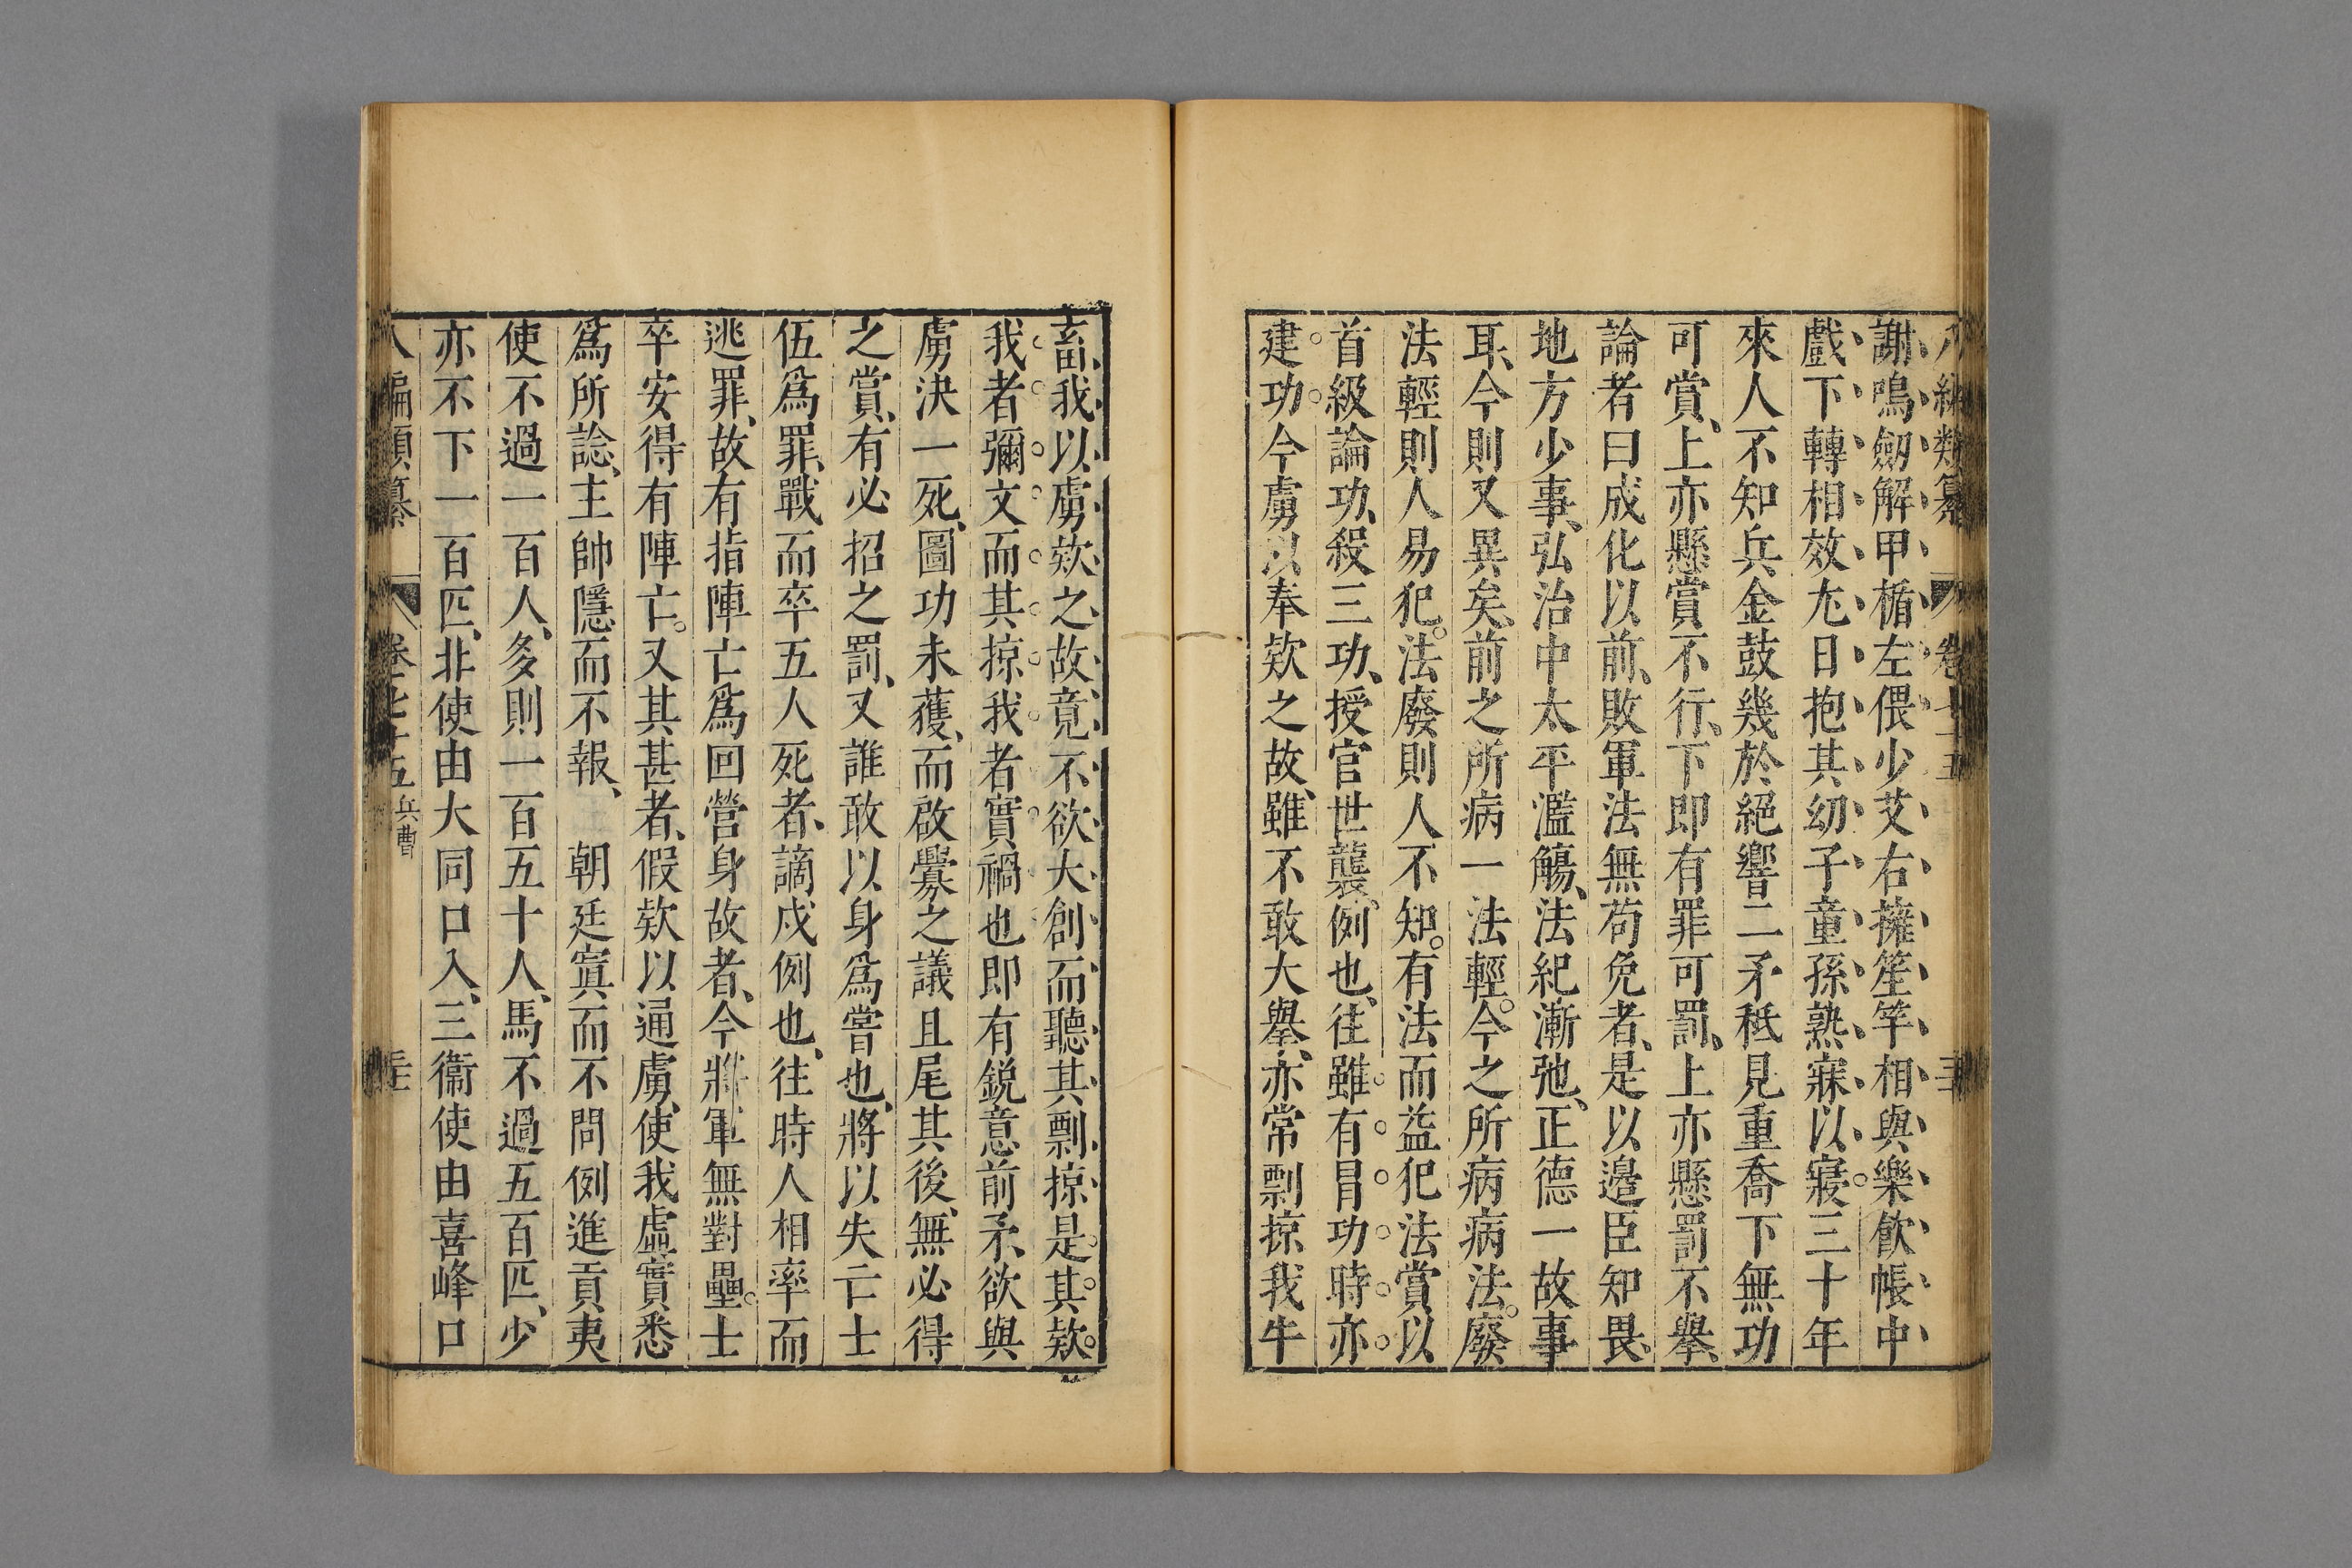 謝鳴劒解甲楯左偎少艾右擁笙竽相與樂飲帳中
戲下轉相效尤日抱其幼子童孫熟寐以寢三十年
來人不知兵金鼓幾於絕響二矛秖見重喬下無功
可賞上亦懸賞不行下即有罪可罰上亦懸罰不舉
論者曰成化以前敗軍法無苟免者是以邊臣知畏
地方少事弘治中太平濫觴法紀漸弛正德一故事
耳今則又異矣前之所病一法輕今之所病病法廢
法輕則人易犯法廢則人不知有法而益犯法賞以
首級論功殺三功授官世襲例也往雖有冒功時亦
建功今虜以奉欵之故雖不敢大舉亦常剽掠我牛
畜我以虜欵之故竟不欲大創而聽其剽掠是其欵
我者彌文而其掠我者實禍也即有銳意前矛欲與
虜決一死圖功未獲而啟釁之議且尾其後無必得
之賞有必招之罰又誰敢以身爲嘗也將以失亡士
伍爲罪戰而卒五人死者謫戍例也往時人相率而
逃罪故有指陣亡爲回營身故者今將軍無對壘士
卒安得有陣亡又其甚者假欵以通虜使我虛實悉
爲所諗主帥隱而不報朝廷寘而不問例進貢夷
使不過一百人多則一百五十人馬不過五百匹少
亦不下一百匹非使由大同口入三衞使由喜峰口
八編類纂 卷之七十五 兵曹